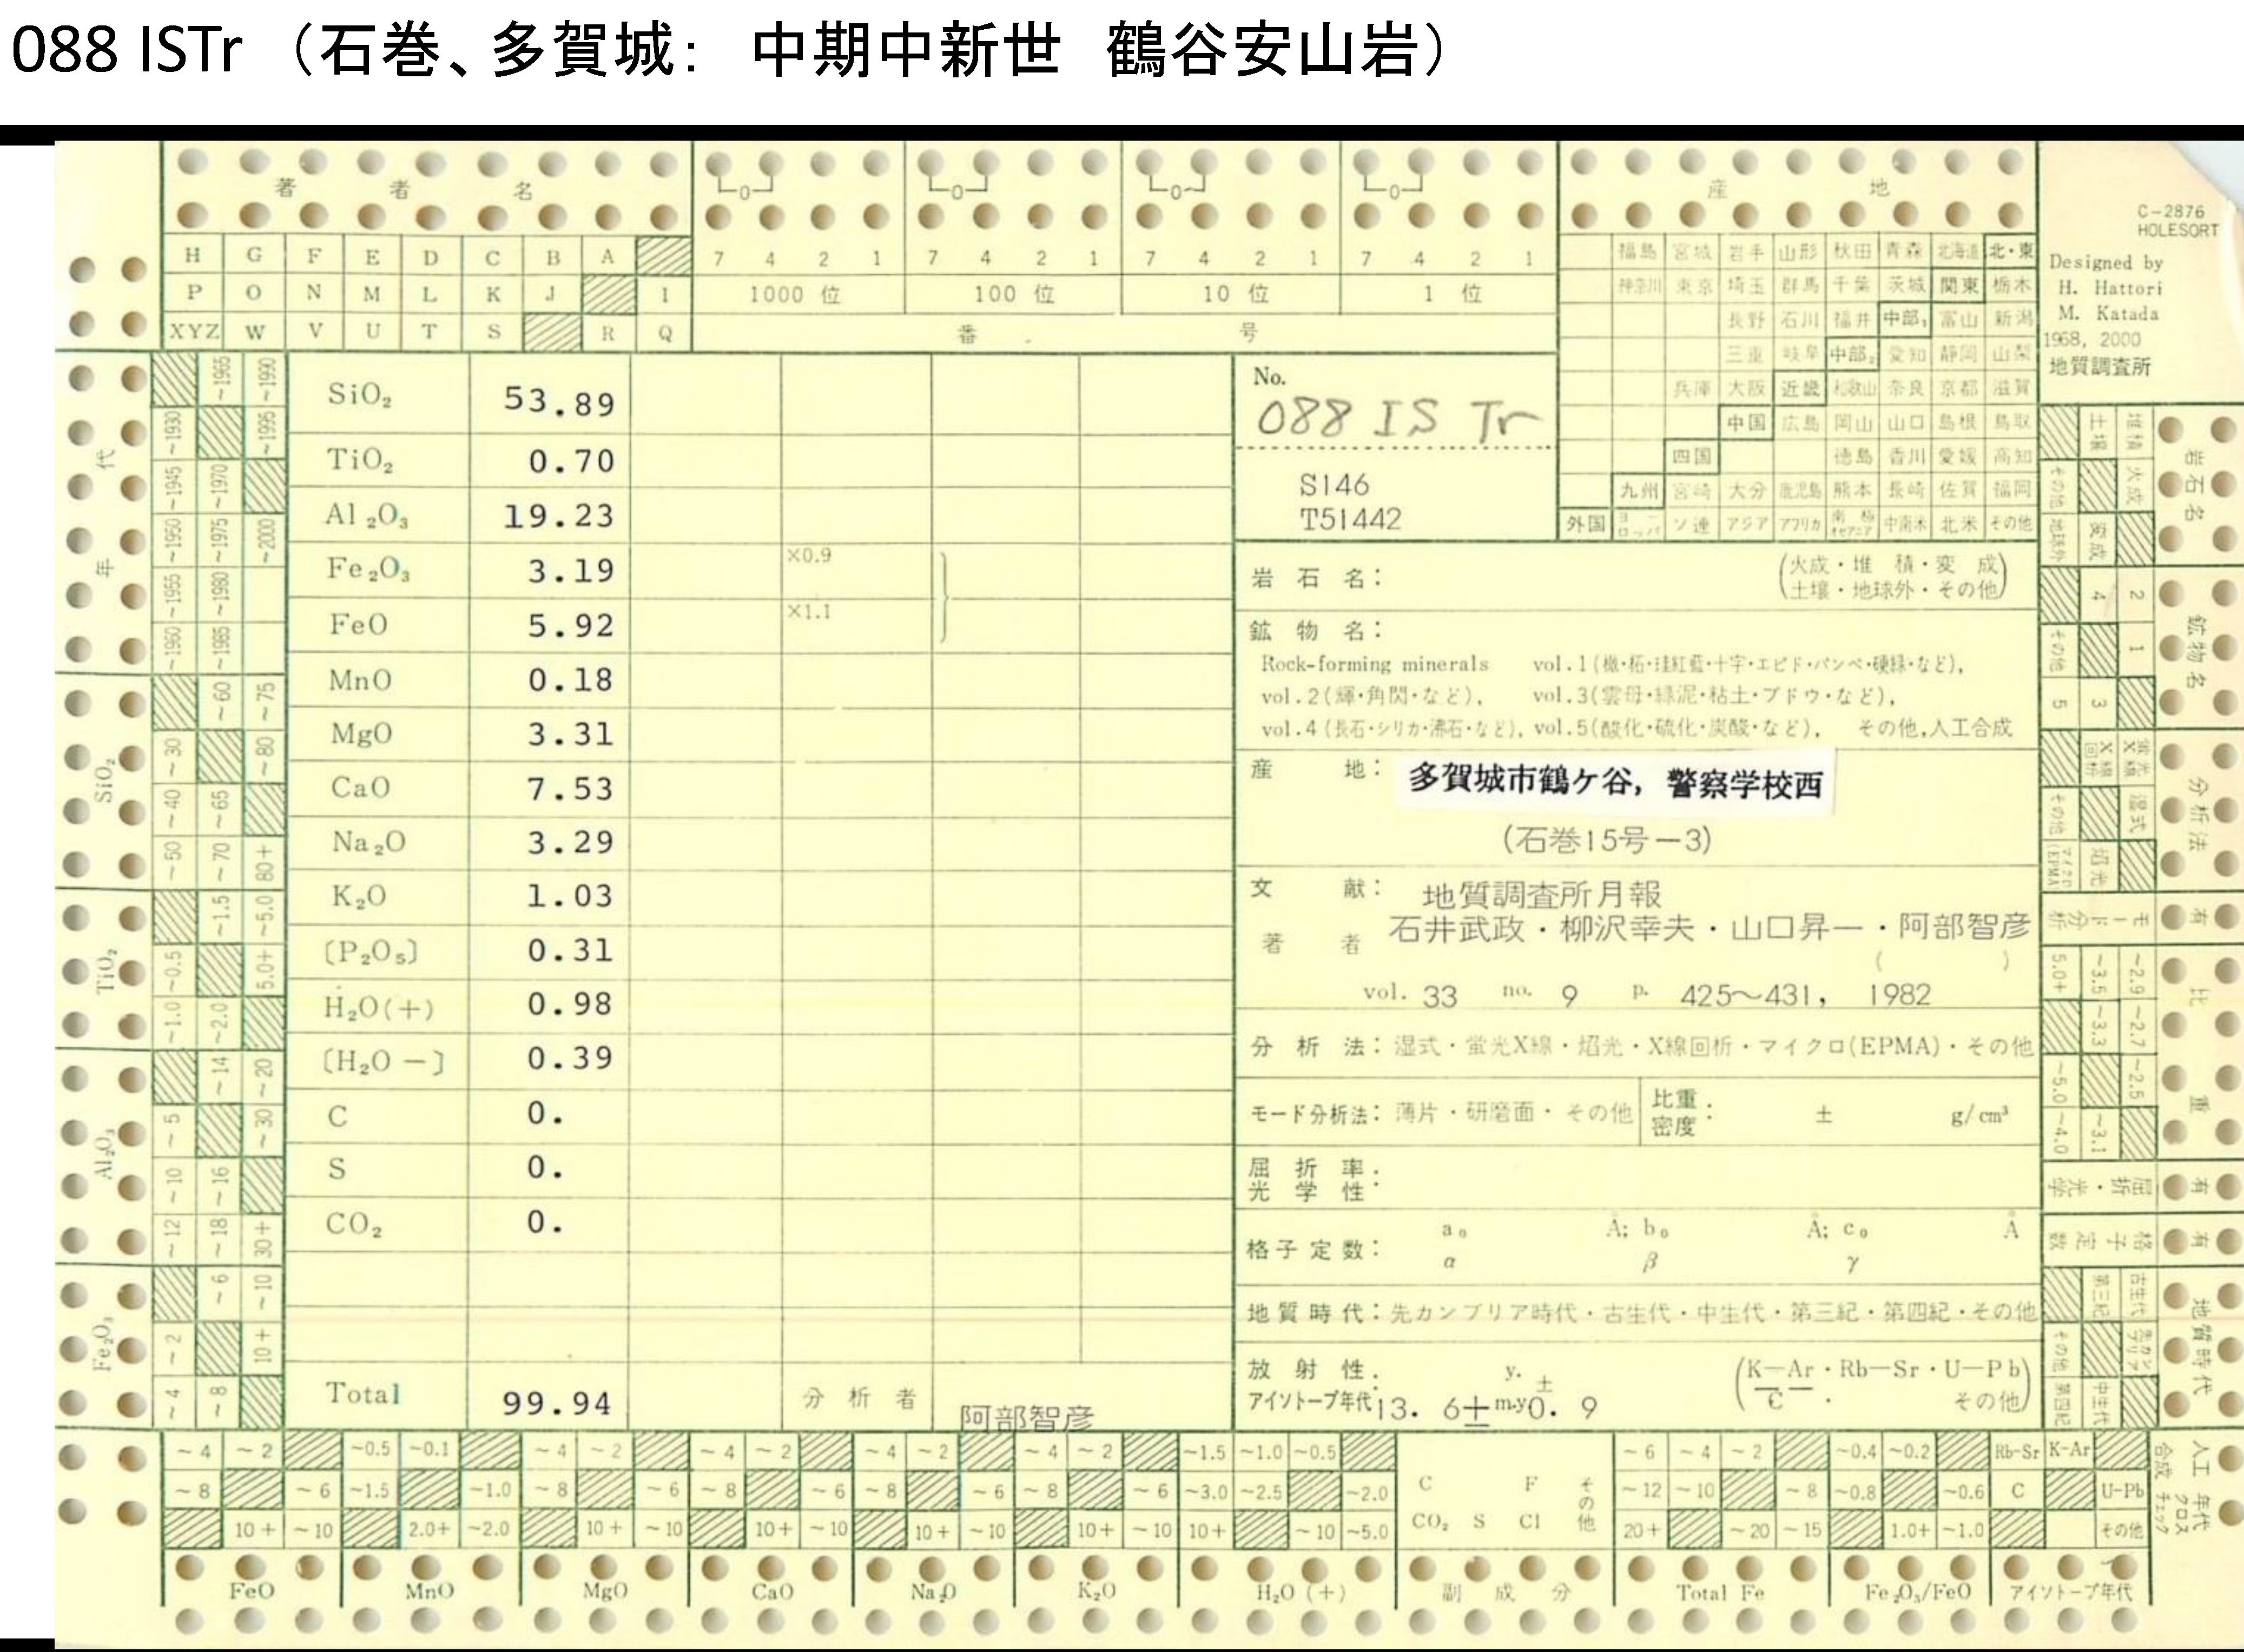 088 ISTr （石巻、多賀城： 中期中新世 鶴谷安山岩）
著 者 名
7 4 2 1 7 4 2 1 7 4 2 1 7 4 2 1
H G F E D C B A
P O N M L K J I
XYZ W V U T S R Q
1000 位 100 位 10 位 1 位
番 号
産 地
福島 宮城 岩手 山形 秋田 青森 北海道 北・東
神奈川 東京 埼玉 群馬 千葉 茨城 関東 栃木
長野 石川 福井 中部₁ 富山 新潟
三重 岐阜 中部₂ 愛知 静岡 山梨
兵庫 大阪 近畿 和歌山 奈良 京都 滋賀
中国 広島 岡山 山口 島根 鳥取
四国 徳島 香川 愛媛 高知
九州 宮崎 大分 鹿児島 熊本 長崎 佐賀 福岡
外国 ヨーロッパ ソ連 アジア アフリカ 南極オセアニア 中南米 北米 その他
C-2876
HOLESORT
Designed by
H. Hattori
M. Katada
1968, 2000
地質調査所
SiO₂ 53.89
TiO₂ 0.70
Al₂O₃ 19.23
Fe₂O₃ 3.19 ×0.9
FeO 5.92 ×1.1
MnO 0.18
MgO 3.31
CaO 7.53
Na₂O 3.29
K₂O 1.03
〔P₂O₅〕 0.31
H₂O(+) 0.98
〔H₂O −〕 0.39
C 0.
S 0.
CO₂ 0.
Total 99.94 分 析 者 阿部智彦
No.
088 IS Tr
S146
T51442
岩 石 名： (火成・堆 積・変 成
土壌・地球外・その他)
鉱 物 名：
Rock-forming minerals vol.1(橄・柘・珪紅藍・十字・エピド・パンペ・硬緑・など),
vol.2(輝・角閃・など), vol.3(雲母・緑泥・粘土・ブドウ・など),
vol.4(長石・シリカ・沸石・など), vol.5(酸化・硫化・炭酸・など), その他,人工合成
産 地： 多賀城市鶴ケ谷，警察学校西
(石巻15号－3)
文 献： 地質調査所月報
著 者 石井武政・柳沢幸夫・山口昇一・阿部智彦
( )
vol. 33 no. 9 p. 425〜431, 1982
分 析 法：湿式・蛍光X線・焔光・X線回析・マイクロ(EPMA)・その他
モード分析法：薄片・研磨面・その他 比重密度： ± g/cm³
屈 折 率
光 学 性：
格子定数： a₀ Å; b₀ Å; c₀ Å
α β γ
地質時代：先カンブリア時代・古生代・中生代・第三紀・第四紀・その他
放 射 性 y. ± (K—Ar・Rb—Sr・U—Pb
アイソトープ年代：13. 6±m.y0. 9 C その他)
年 代
~1965 ~1990
~1930 ~1995
~1945 ~1970
~1950 ~1975 ~2000
~1955 ~1980
~1960 ~1985
SiO₂
~60 ~75
~30 ~80
~40 ~65
~50 ~70 80+
TiO₂
~1.5 ~5.0
~0.5 5.0+
~1.0 ~2.0
Al₂O₃
~14 ~20
~5 ~30
~10 ~16
~12 ~18 30+
Fe₂O₃
~6 ~10
~2 10+
~4 ~8
岩石名
土壌 堆積
その他 火成
地球外 変成
鉱物名
4 2
その他 1
5 3
分析法
X線回析 蛍光X線
その他 湿式
マイクロ(EPMA) 焔光
モード分析 有
比 重
5.0+ ~3.5 ~2.9
~3.3 ~2.7
~5.0 ~2.5
~4.0 ~3.1
屈折・光学 有
格子定数 有
地質時代
第三紀 古生代
その他 先カンブリア
第四紀 中生代
~4 ~2 ~0.5 ~0.1 ~4 ~2 ~4 ~2 ~4 ~2 ~4 ~2 ~1.5 ~1.0 ~0.5 ~6 ~4 ~2 ~0.4 ~0.2 Rb-Sr K-Ar
~8 ~6 ~1.5 ~1.0 ~8 ~6 ~8 ~6 ~8 ~6 ~8 ~6 ~3.0 ~2.5 ~2.0 C F その他 ~12 ~10 ~8 ~0.8 ~0.6 C U-Pb
10+ ~10 2.0+ ~2.0 10+ ~10 10+ ~10 10+ ~10 10+ ~10 10+ ~10 ~5.0 CO₂ S Cl 20+ ~20 ~15 1.0+ ~1.0 その他
人工合成 年代クロスチェック
FeO MnO MgO CaO Na₂O K₂O H₂O (+) 副 成 分 Total Fe Fe₂O₃/FeO アイソトープ年代